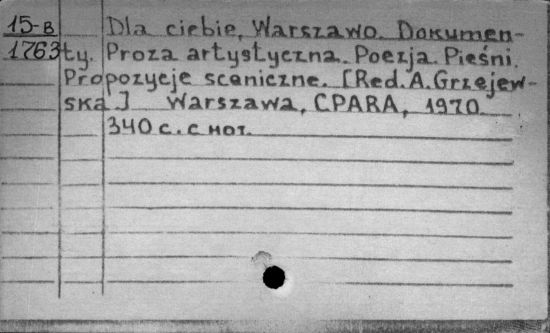 15-В Dla ciebie, Warszawo. Dokumen-
1763 ty. Proza artystyczna. Poezja. Pieśni.
Propozycje sceniczne. [Red. A. Grzejew-
ska.] Warszawa, CPARA, 1970.
340 с. с нот.